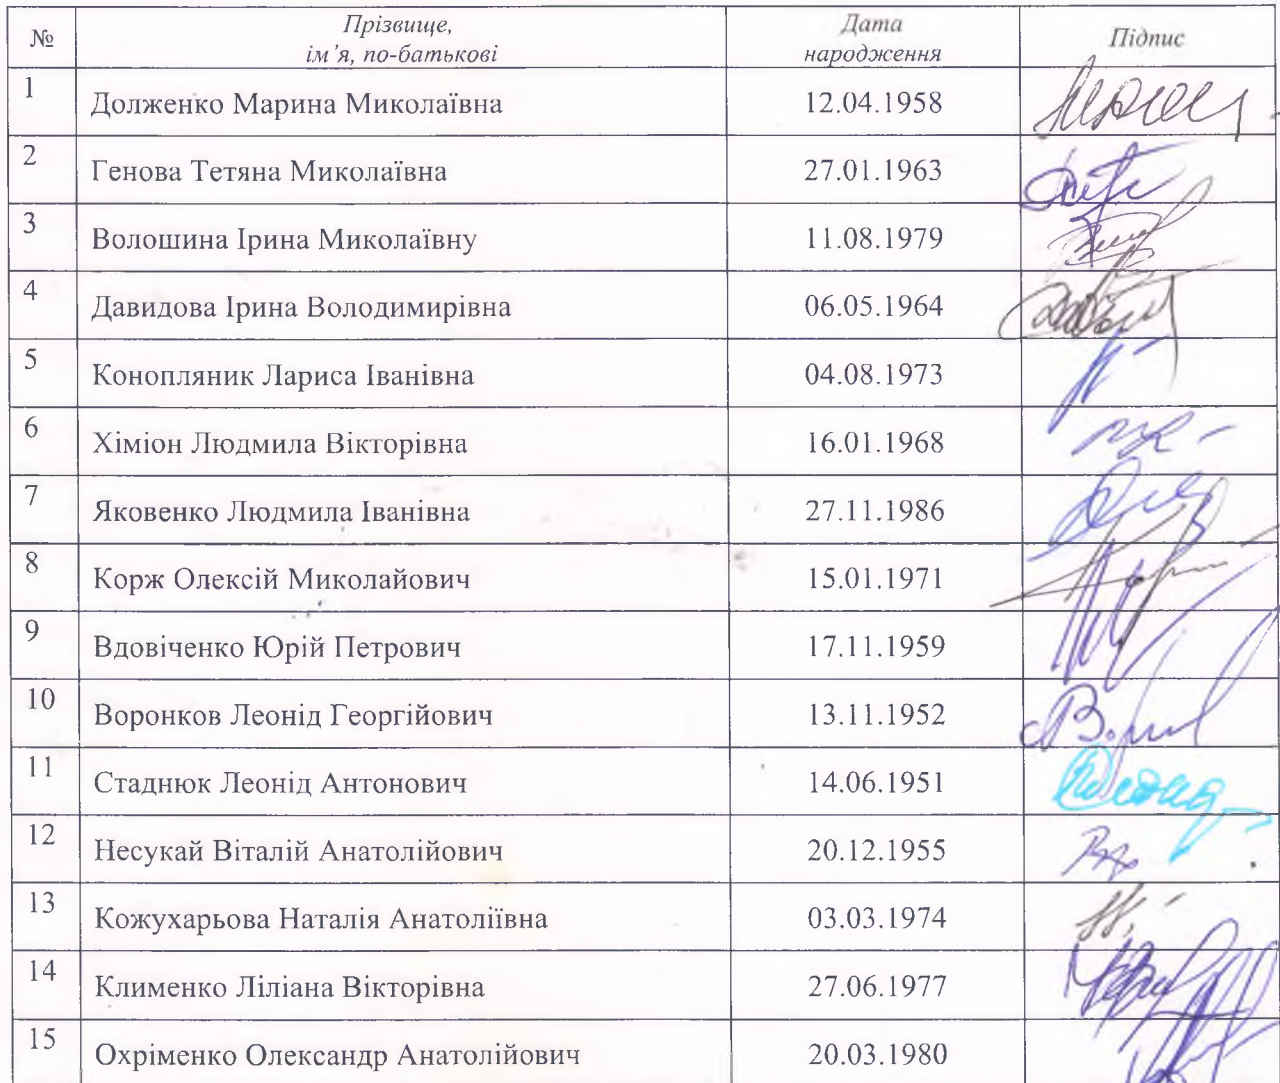 №
Прізвище,
ім’я, по-батькові
Дата
народження
Підпис
1 Долженко Марина Миколаївна 12.04.1958
2 Генова Тетяна Миколаївна 27.01.1963
3 Волошина Ірина Миколаївну 11.08.1979
4 Давидова Ірина Володимирівна 06.05.1964
5 Конопляник Лариса Іванівна 04.08.1973
6 Хіміон Людмила Вікторівна 16.01.1968
7 Яковенко Людмила Іванівна 27.11.1986
8 Корж Олексій Миколайович 15.01.1971
9 Вдовіченко Юрій Петрович 17.11.1959
10 Воронков Леонід Георгійович 13.11.1952
11 Стаднюк Леонід Антонович 14.06.1951
12 Несукай Віталій Анатолійович 20.12.1955
13 Кожухарьова Наталія Анатоліївна 03.03.1974
14 Клименко Ліліана Вікторівна 27.06.1977
15 Охріменко Олександр Анатолійович 20.03.1980